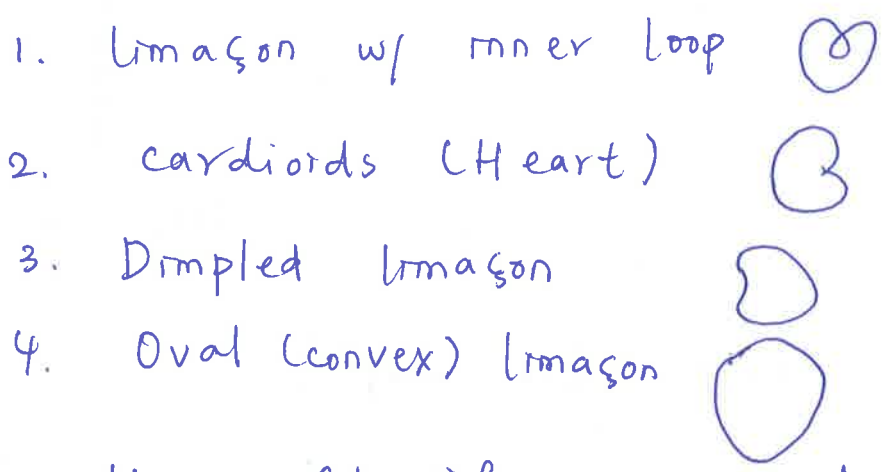 1. limaçon w/ inner loop
2. cardioids (Heart)
3. Dimpled limaçon
4. Oval (convex) limaçon